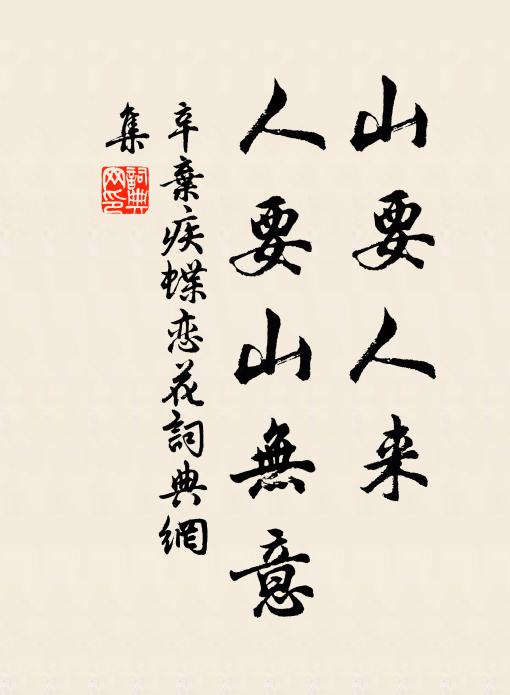 山要人来
人要山無意
辛棄疾蝶恋花詞典網
集
詞典網印